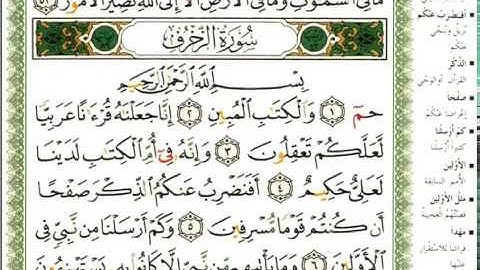 مَا فِي ٱلسَّمَٰوَٰتِ وَمَا فِي ٱلْأَرْضِ أَلَآ إِلَى ٱللَّهِ تَصِيرُ ٱلْأُمُورُ ٥٣
سُورَةُ ٱلزُّخْرُفِ
بِسْمِ ٱللَّهِ ٱلرَّحْمَٰنِ ٱلرَّحِيمِ
حمٓ ١ وَٱلْكِتَٰبِ ٱلْمُبِينِ ٢ إِنَّا جَعَلْنَٰهُ قُرْءَٰنًا عَرَبِيًّا
لَّعَلَّكُمْ تَعْقِلُونَ ٣ وَإِنَّهُۥ فِىٓ أُمِّ ٱلْكِتَٰبِ لَدَيْنَا
لَعَلِىٌّ حَكِيمٌ ٤ أَفَنَضْرِبُ عَنكُمُ ٱلذِّكْرَ صَفْحًا
أَن كُنتُمْ قَوْمًا مُّسْرِفِينَ ٥ وَكَمْ أَرْسَلْنَا مِن نَّبِىٍّ فِى
ٱلْأَوَّلِينَ ٦ وَمَا يَأْتِيهِم مِّن نَّبِىٍّ إِلَّا كَانُوا۟ بِهِۦ يَسْتَهْزِءُونَ
أَفَنَضْرِبُ عَنكُمُ
عنكم
الذِّكْرَ
صَفْحًا
كَمْ أَرْسَلْنَا
الأَوَّلِينَ
الأمم السابقة
مَثَلُ الأَوَّلِينَ
مَهْدًا